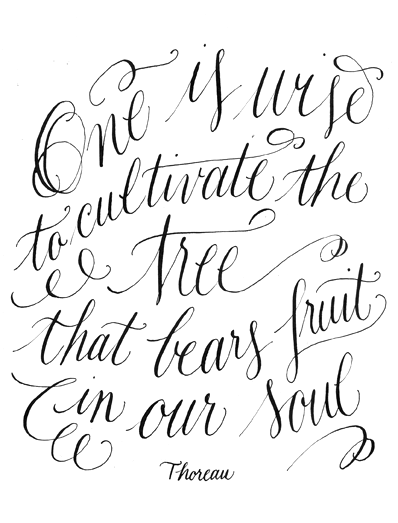 One is wise
to cultivate the
tree
that bears fruit
in our soul
Thoreau